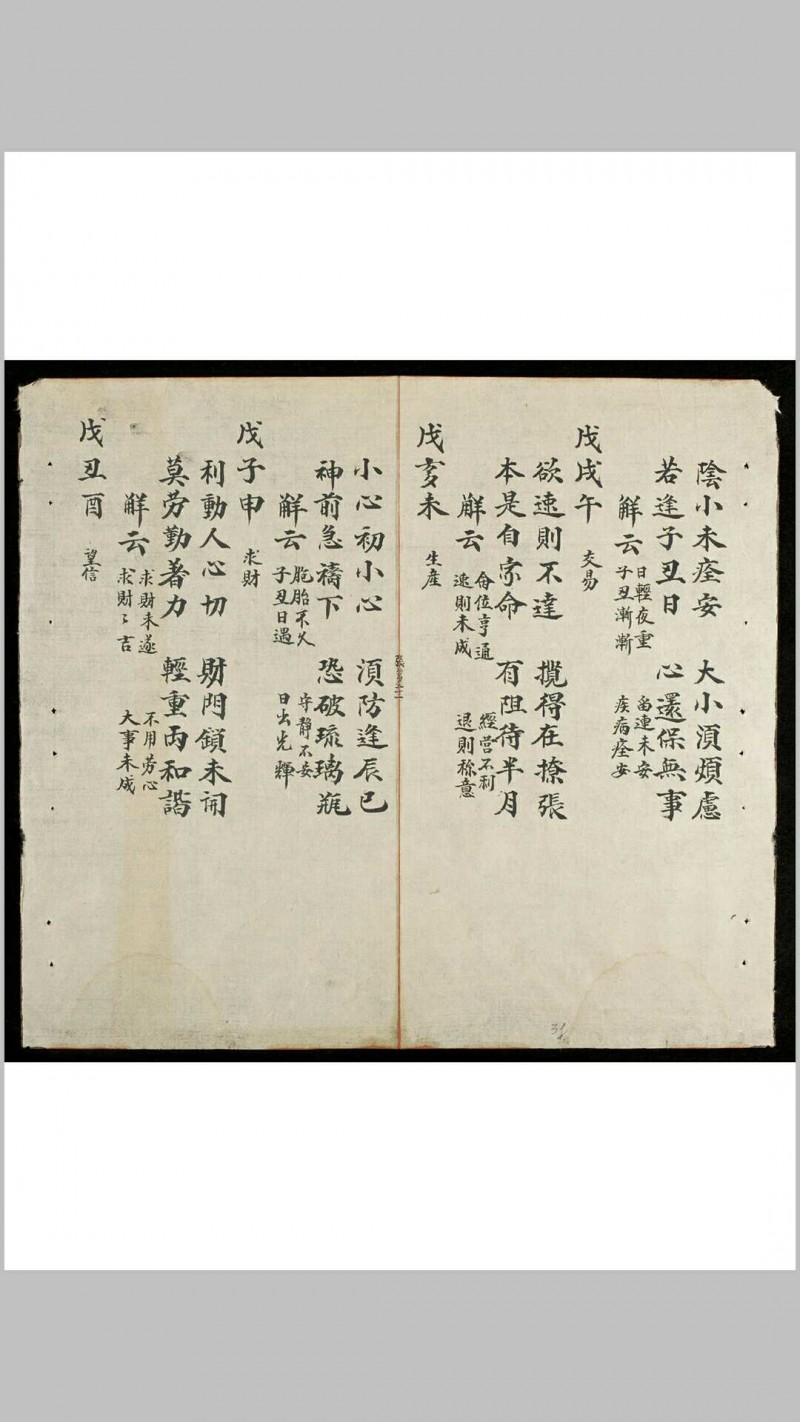 陰小未痊安　大小湏煩慮
若逢子丑日　心還保無事
解云　日輕夜重　畄連未安
子丑漸漸　疾病痊安
戊戌午　交易
欲速則不達　攪得在撩張
本是自家命　有阻待半月
解云　命位亨通　經営不利
速則未成　退則称意
戊亥未　生産
小心初小心　湏防逢辰巳
神前急禱下　恐破琉璃瓶
解云　胞胎不久　守靜不妄
子丑日遇　日出光輝
戊子申　求財
利動人心切　財門鎖未開
莫劳勤著力　輕重両和諧
解云　求財未遂　不用劳心
求財〻吉　大事未成
戊丑酉　望信
31